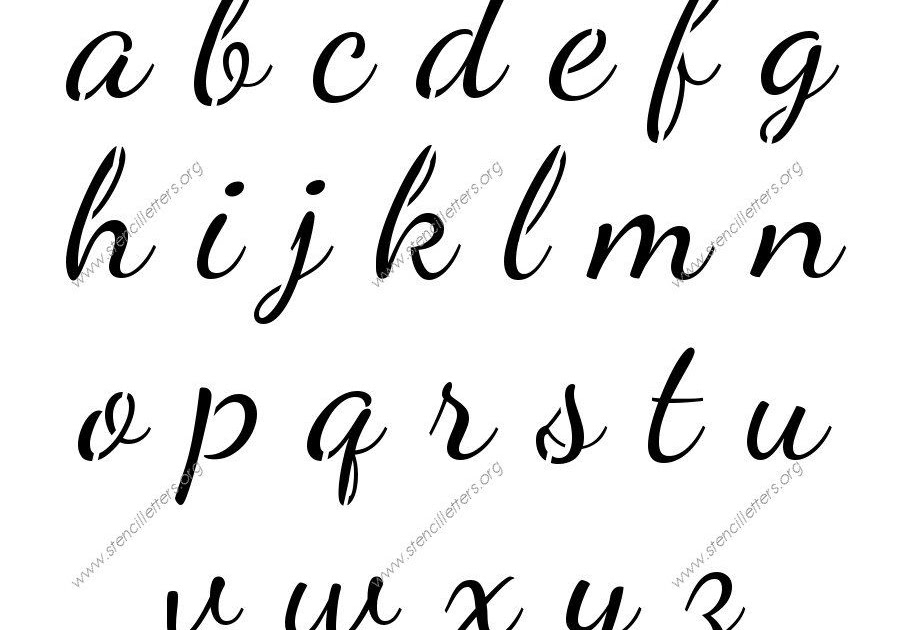 a b c d e f g
h i j k l m n
www.stencilletters.org www.stencilletters.org www.stencilletters.org
o p q r s t u
www.stencilletters.org www.stencilletters.org www.stencilletters.org
v w x y z